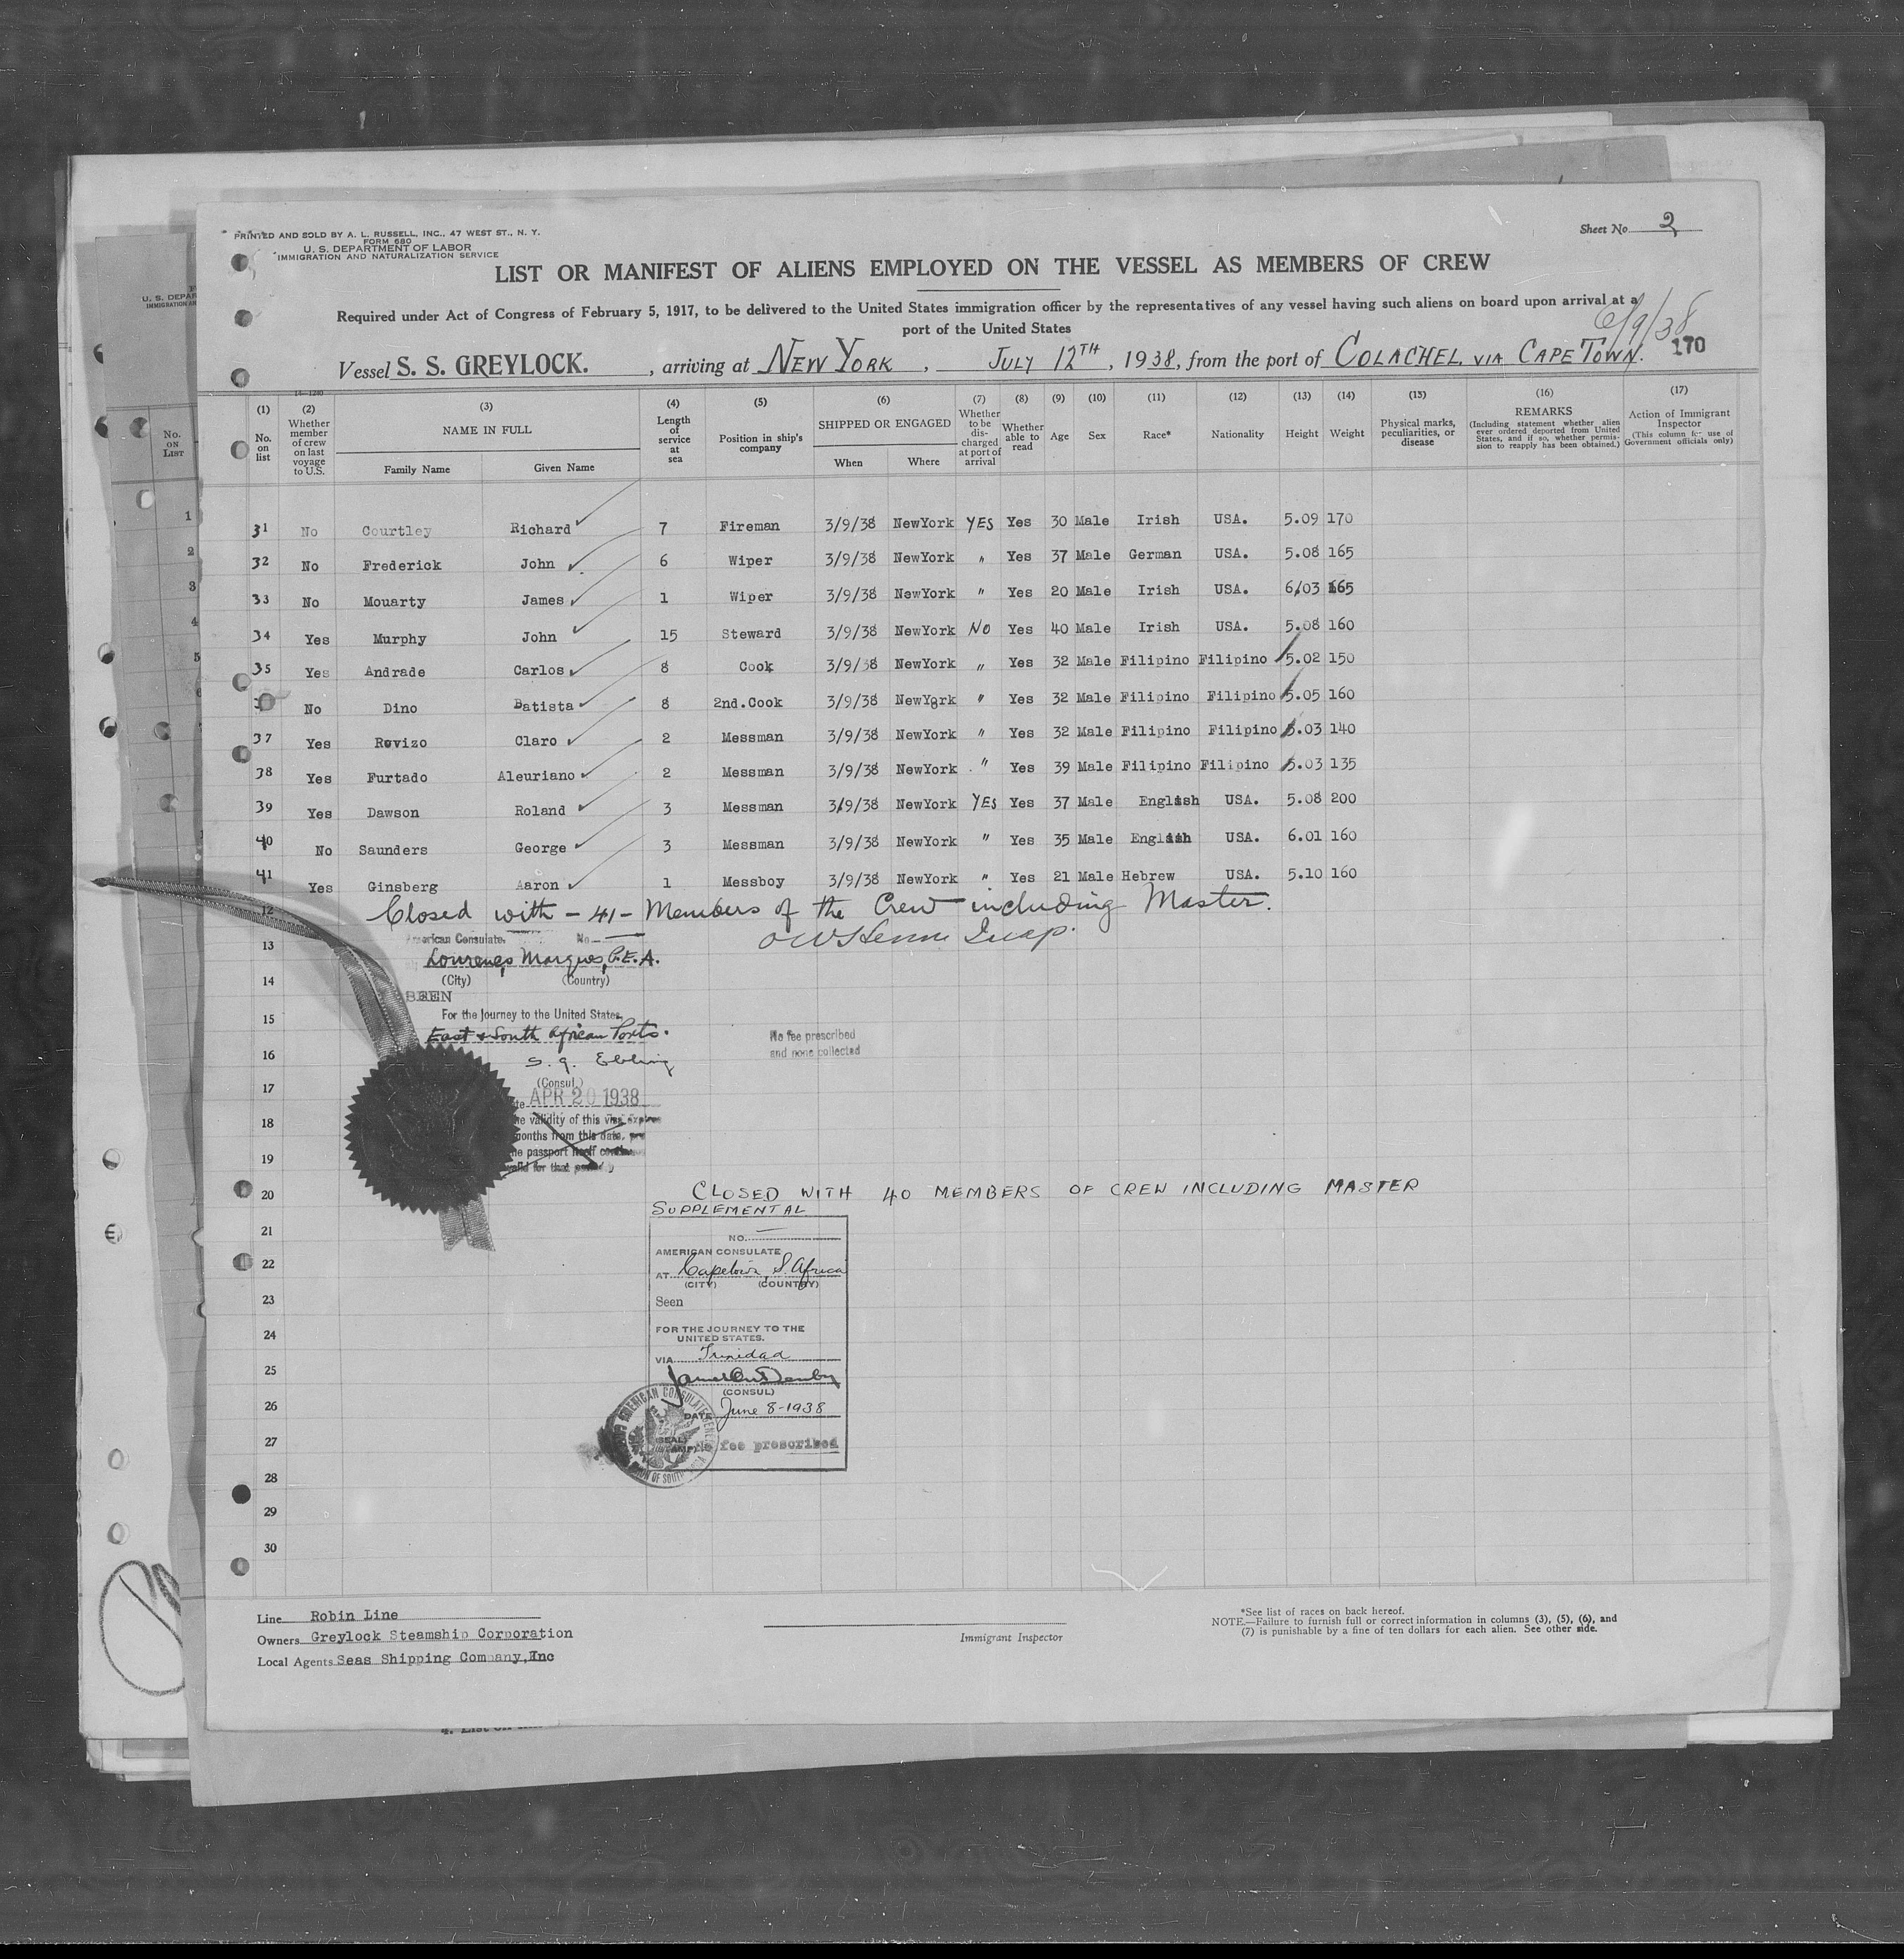 PRINTED AND SOLD BY A. L. RUSSELL, INC., 47 WEST ST., N. Y.
FORM 680
U. S. DEPARTMENT OF LABOR
IMMIGRATION AND NATURALIZATION SERVICE
Sheet No. 2
LIST OR MANIFEST OF ALIENS EMPLOYED ON THE VESSEL AS MEMBERS OF CREW
Required under Act of Congress of February 5, 1917, to be delivered to the United States immigration officer by the representatives of any vessel having such aliens on board upon arrival at a
port of the United States
6/9/38
Vessel S. S. GREYLOCK. , arriving at NEW YORK , JULY 12TH , 1938, from the port of COLACHEL VIA CAPE TOWN. 170
(1) No. on list
(2) Whether member of crew on last voyage to U.S.
(3) NAME IN FULL Family Name Given Name
(4) Length of service at sea
(5) Position in ship's company
(6) SHIPPED OR ENGAGED When Where
(7) Whether to be discharged at port of arrival
(8) Whether able to read
(9) Age
(10) Sex
(11) Race*
(12) Nationality
(13) Height
(14) Weight
(15) Physical marks, peculiarities, or disease
(16) REMARKS (Including statement whether alien ever ordered deported from United States, and if so, whether permission to reapply has been obtained.)
(17) Action of Immigrant Inspector (This column for use of Government officials only)
31 No Courtley Richard 7 Fireman 3/9/38 NewYork YES Yes 30 Male Irish USA. 5.09 170
32 No Frederick John 6 Wiper 3/9/38 NewYork " Yes 37 Male German USA. 5.08 165
33 No Mouarty James 1 Wiper 3/9/38 NewYork " Yes 20 Male Irish USA. 6/03 165
34 Yes Murphy John 15 Steward 3/9/38 NewYork NO Yes 40 Male Irish USA. 5.08 160
35 Yes Andrade Carlos 8 Cook 3/9/38 NewYork " Yes 32 Male Filipino Filipino 5.02 150
No Dino Batista 8 2nd.Cook 3/9/38 NewYork " Yes 32 Male Filipino Filipino 5.05 160
37 Yes Rovizo Claro 2 Messman 3/9/38 NewYork " Yes 32 Male Filipino Filipino 5.03 140
38 Yes Furtado Aleuriano 2 Messman 3/9/38 NewYork " Yes 39 Male Filipino Filipino 5.03 135
39 Yes Dawson Roland 3 Messman 3/9/38 NewYork YES Yes 37 Male English USA. 5.08 200
40 No Saunders George 3 Messman 3/9/38 NewYork " Yes 35 Male English USA. 6.01 160
41 Yes Ginsberg Aaron 1 Messboy 3/9/38 NewYork " Yes 21 Male Hebrew USA. 5.10 160
12 Closed with - 41 - Members of the Crew including Master.
13
American Consulate. No.
Lourenço Marques, P.E.A.
14 (City) (Country)
SEEN
15 For the Journey to the United States,
East & South African Ports.
No fee prescribed
and none collected
16 S. G. Ebling
17 (Consul.)
APR 20 1938
18 validity of this visa expires
months from this date,
19 passport itself
valid for that
20 CLOSED WITH 40 MEMBERS OF CREW INCLUDING MASTER
SUPPLEMENTAL
21 NO.
AMERICAN CONSULATE
22 AT Capetown, S. Africa
(CITY) (COUNTRY)
23 Seen
24 FOR THE JOURNEY TO THE
UNITED STATES.
VIA Trinidad
25
(CONSUL)
26 DATE June 8-1938
27 No fee prescribed
28
29
30
Line Robin Line
Owners Greylock Steamship Corporation
Local Agents Seas Shipping Company, Inc
Immigrant Inspector
*See list of races on back hereof.
NOTE.—Failure to furnish full or correct information in columns (3), (5), (6), and
(7) is punishable by a fine of ten dollars for each alien. See other side.